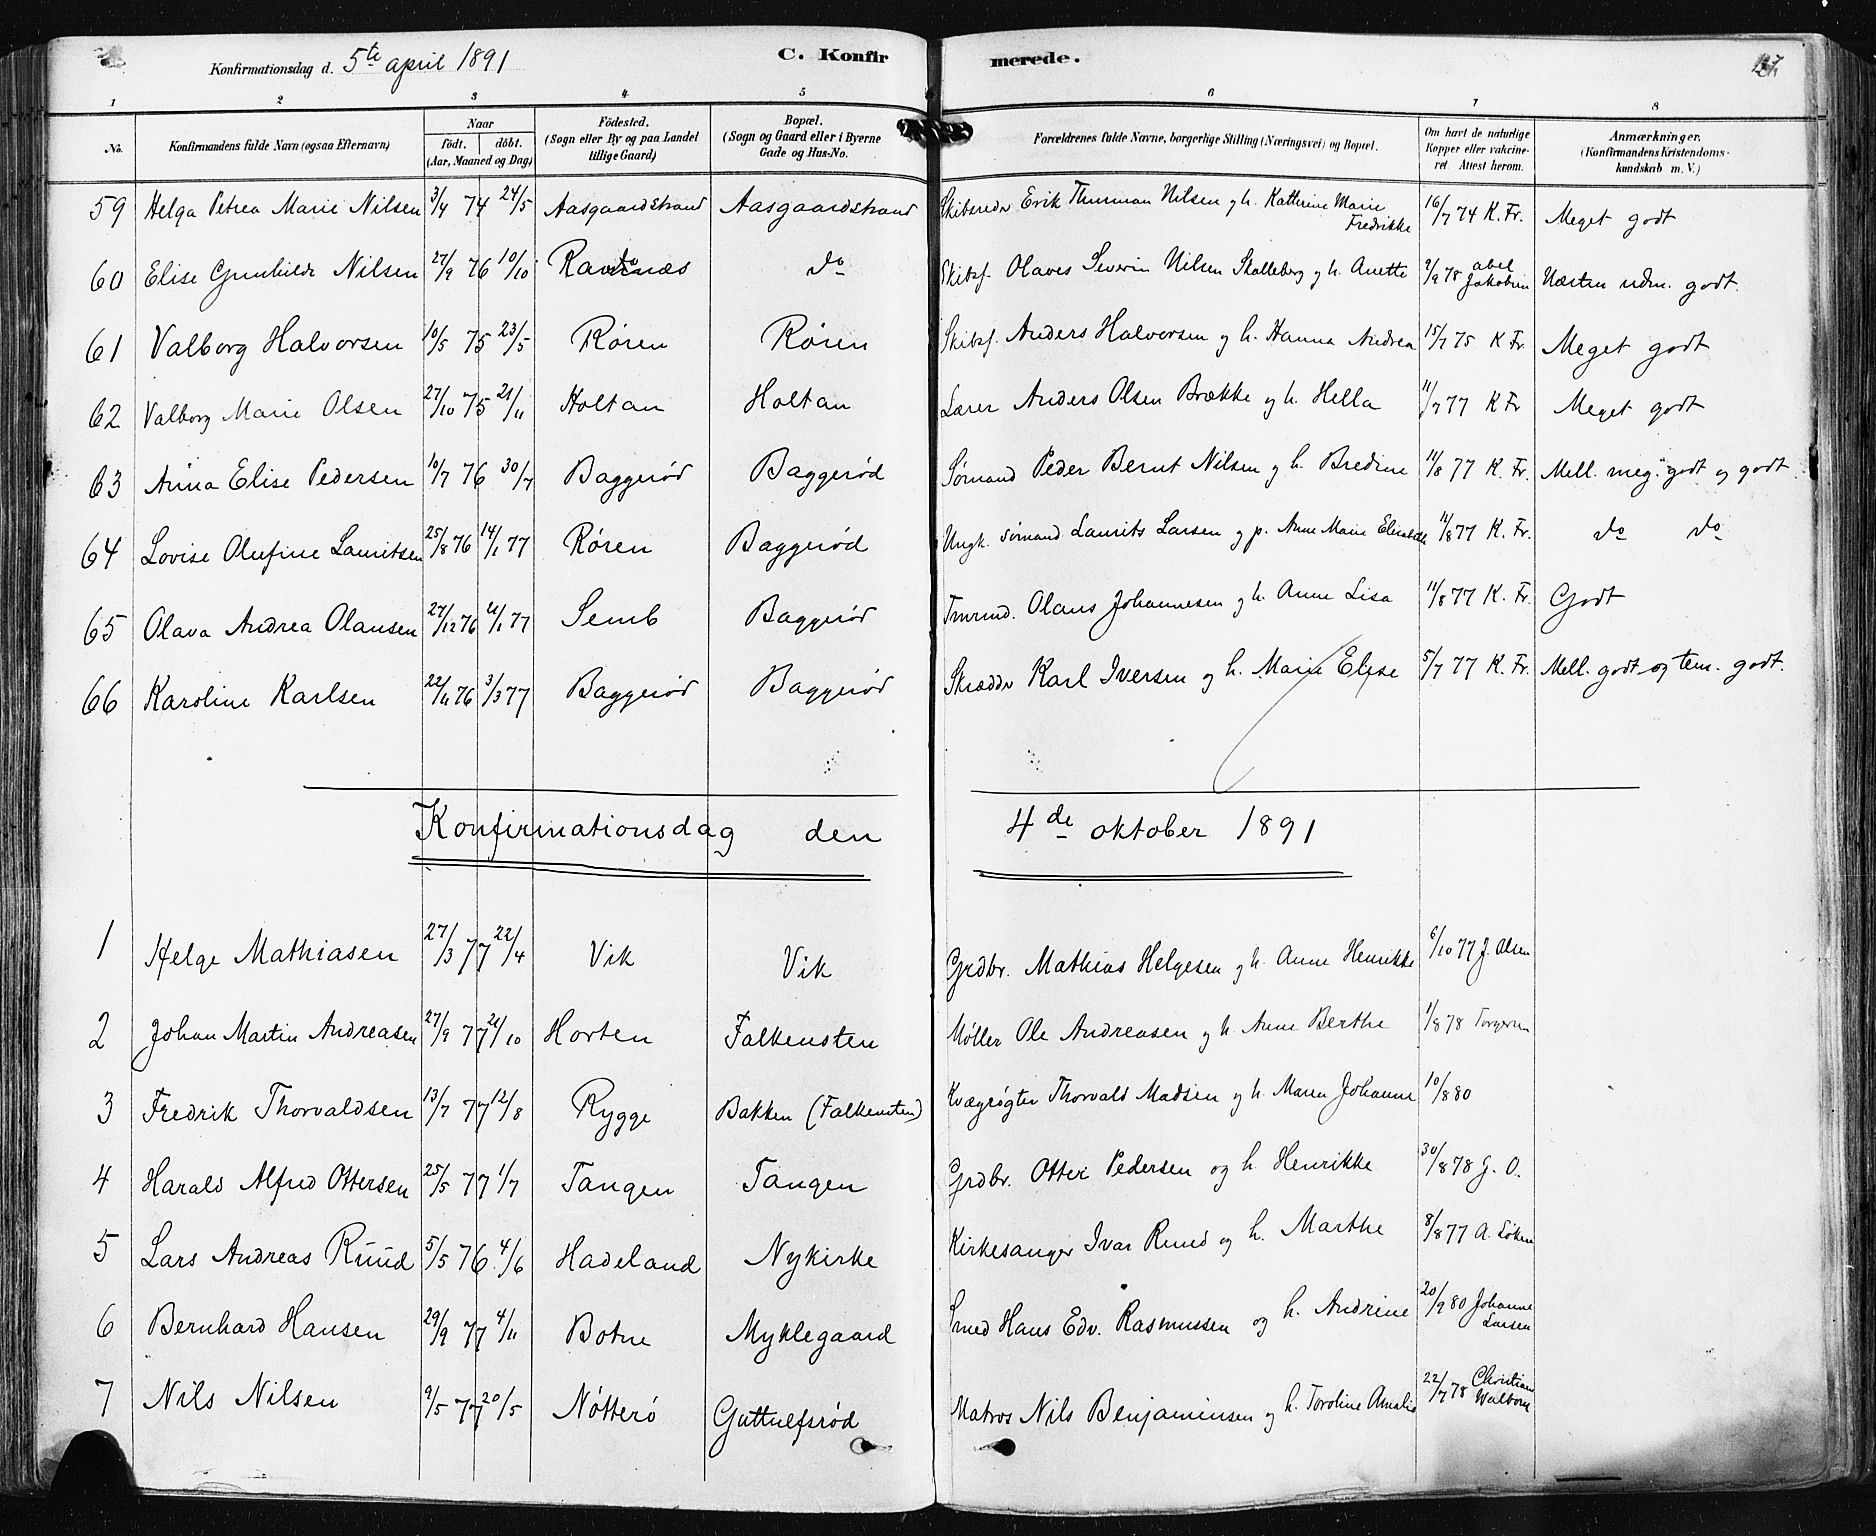 Konfirmationsdag d. 5te april 1891 C. Konfirmerede.
1 2 3 4 5 6 7 8
No. Konfirmandens fulde Navn (ogsaa Efternavn) Naar født. døbt. (Aar, Maaned og Dag) Fødested. (Sogn eller By og paa Landet tillige Gaard) Bopæl. (Sogn og Gaard eller i Byerne Gade og Hus-No. Forældrenes fulde Navne, borgerlige Stilling (Næringsvei) og Bopæl. Om havt de naturlige Kopper eller vakcineret. Attest herom. Anmærkninger. (Konfirmandens Kristendomskundskab m. V.)
59 Helga Petrea Marie Nilsen 3/4 74 24/5 Aasgaardstrand Aasgaardstrand Skibsreder Erik Thurman Nilsen og h. Katherine Marie Fredrikke 16/7 74 K. Fr. Meget godt
60 Elise Gunhilde Nilsen 27/9 76 10/10 do Skibsf. Olaves Severin Nilsen Skalleberg og h. Anette 2/9 78 Abel Jakobsen Næsten udm. godt.
61 Valborg Halvorsen 10/5 75 23/5 Røren Røren Skibsf. Anders Halvorsen og h. Hanna Andrea 15/7 75 K Fr. Meget godt
62 Valborg Marie Olsen 27/10 75 21/11 Holtan Holtan Lærer Anders Olsen Brække og h. Hella 11/7 77 K Fr Meget godt
63 Anna Elise Pedersen 10/7 76 30/7 Baggerød Baggerød Sømand Peder Bernt Nilsen og h. Bredine 11/8 77 K. Fr. Mell. meg. godt og godt
64 Lovise Olufine Lauritsen 25/8 76 14/1 77 Røren Baggerød Ungk. sømand Laurits Larsen og p. Anne Marie Elisabeth 11/8 77 K. Fr. do do
65 Olava Andrea Olausen 27/12 76 21/1 77 Semb Baggerød Tmrmd. Olaus Johannesen og h. Anne Lisa 11/8 77 K. Fr. Godt
66 Karoline Karlsen 22/11 76 3/3 77 Baggerød Baggerød Skrædder Karl Iversen og h. Marie Elise 5/7 77 K. Fr. Mell. godt og tem. godt.
Konfirmationsdag den 4de oktober 1891
1 Helge Mathiasen 27/3 77 22/4 Vik Vik Grdbr. Mathias Helgesen og h. Anne Henrikke 6/10 77 J. Olsen
2 Johan Martin Andreasen 27/9 77 21/10 Horten Falkensten Møller Ole Andreasen og h. Anne Berthe 1/8 78
3 Fredrik Thorvaldsen 13/7 77 12/8 Rygge Bakken (Falkensten) Kvægrøgter Thorvald Madsen og h. Maren Johanne 10/8 80
4 Harald Alfred Ottersen 25/5 77 1/7 Tangen Tangen Grdbr. Otter Pedersen og h. Henrikke 30/8 78 J. O.
5 Lars Andreas Ruud 5/5 76 4/6 Hadeland Nykirke Kirkesanger Ivar Ruud og h. Marthe 8/8 77
6 Bernhard Hansen 29/9 77 4/11 Botne Myklegaard Smed Hans Edv. Rasmussen og h. Andrine 20/9 80 Johanne Larsen
7 Nils Nilsen 9/5 77 20/5 Nøtterø Guttulfsrød Matros Nils Benjaminsen og h. Toroline Amalie 22/7 78 Christiane